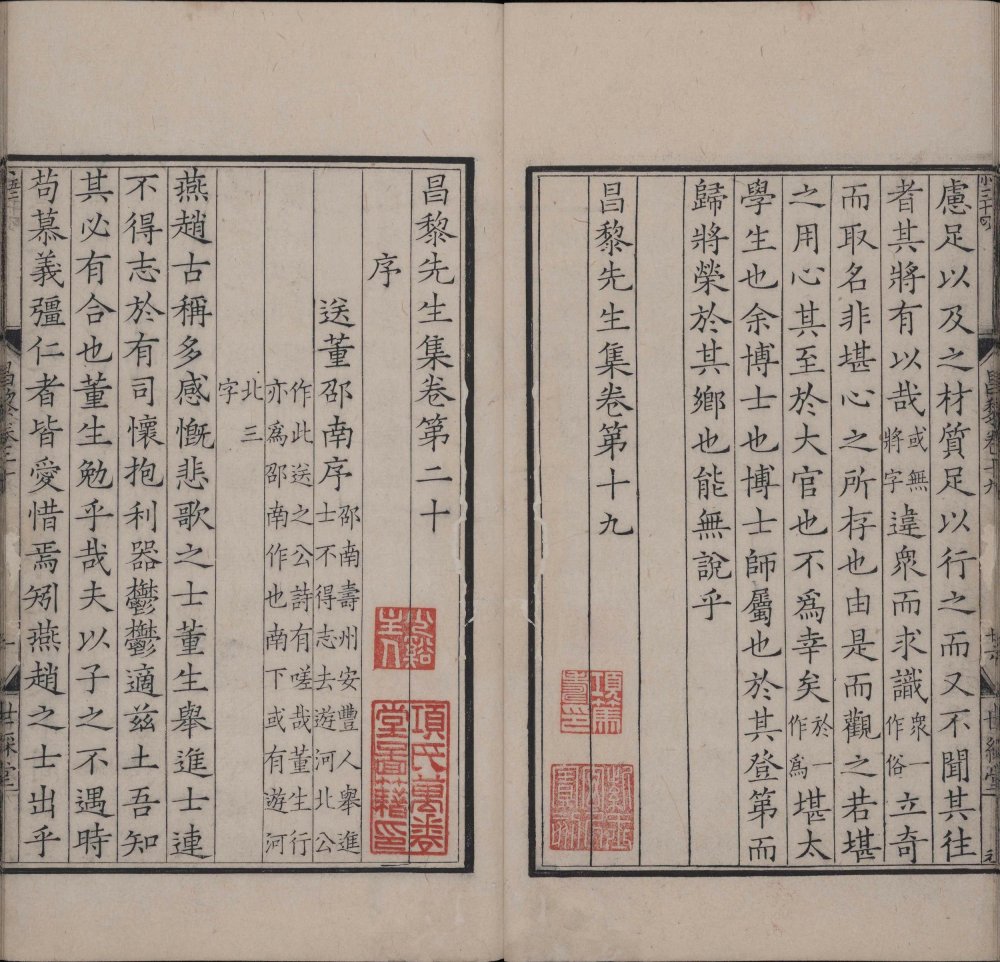 慮足以及之材質足以行之而又不聞其往
者其將有以哉或無將字違衆而求識衆一作俗立奇
而取名非堪心之所存也由是而觀之若堪
之用心其至於大官也不爲幸矣於一作爲堪太
學生也余博士也博士師屬也於其登第而
歸將榮於其鄉也能無說乎
昌黎先生集卷第十九
昌黎先生集卷第二十
序
送董邵南序邵南壽州安豐人舉進士不得志去遊河北公
作此送之公詩有嗟哉董生行亦爲邵南作也南下或有遊河
北三字
燕趙古稱多感慨悲歌之士董生舉進士連
不得志於有司懷抱利器鬱鬱適兹土吾知
其必有合也董生勉乎哉夫以子之不遇時
苟慕義彊仁者皆愛惜焉矧燕趙之士出乎
項氏萬卷堂圖籍印